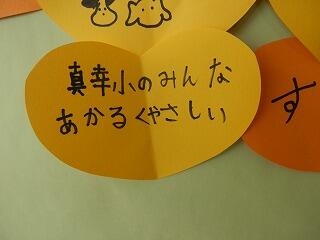 真幸小のみんな
あかるくやさしい
す